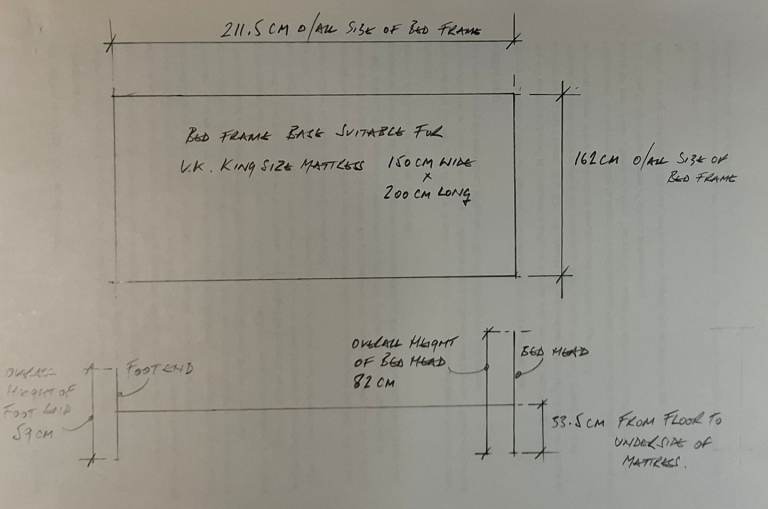 211.5 CM O/ALL SIZE OF BED FRAME
BED FRAME BASE SUITABLE FOR
U.K. KING SIZE MATTRESS 150 CM WIDE
x
200 CM LONG
162 CM O/ALL SIZE OF
BED FRAME
OVERALL HEIGHT
OF BED HEAD
82 CM
BED HEAD
FOOT END
OVERALL
HEIGHT OF
FOOT END
59 CM
33.5 CM FROM FLOOR TO
UNDERSIDE OF
MATTRESS.